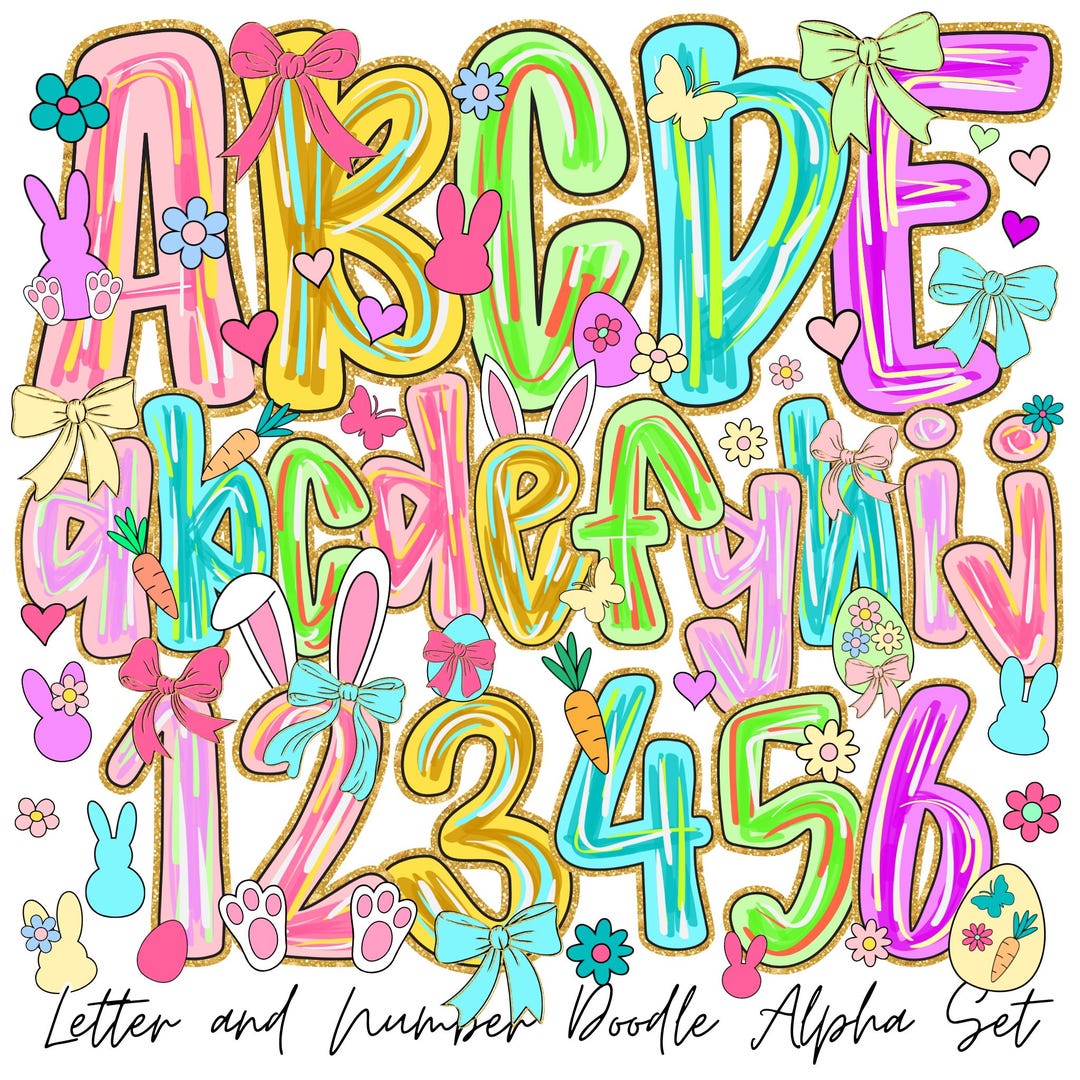 ABCDE
abcdefghij
123456
Letter and Number Doodle Alpha Set